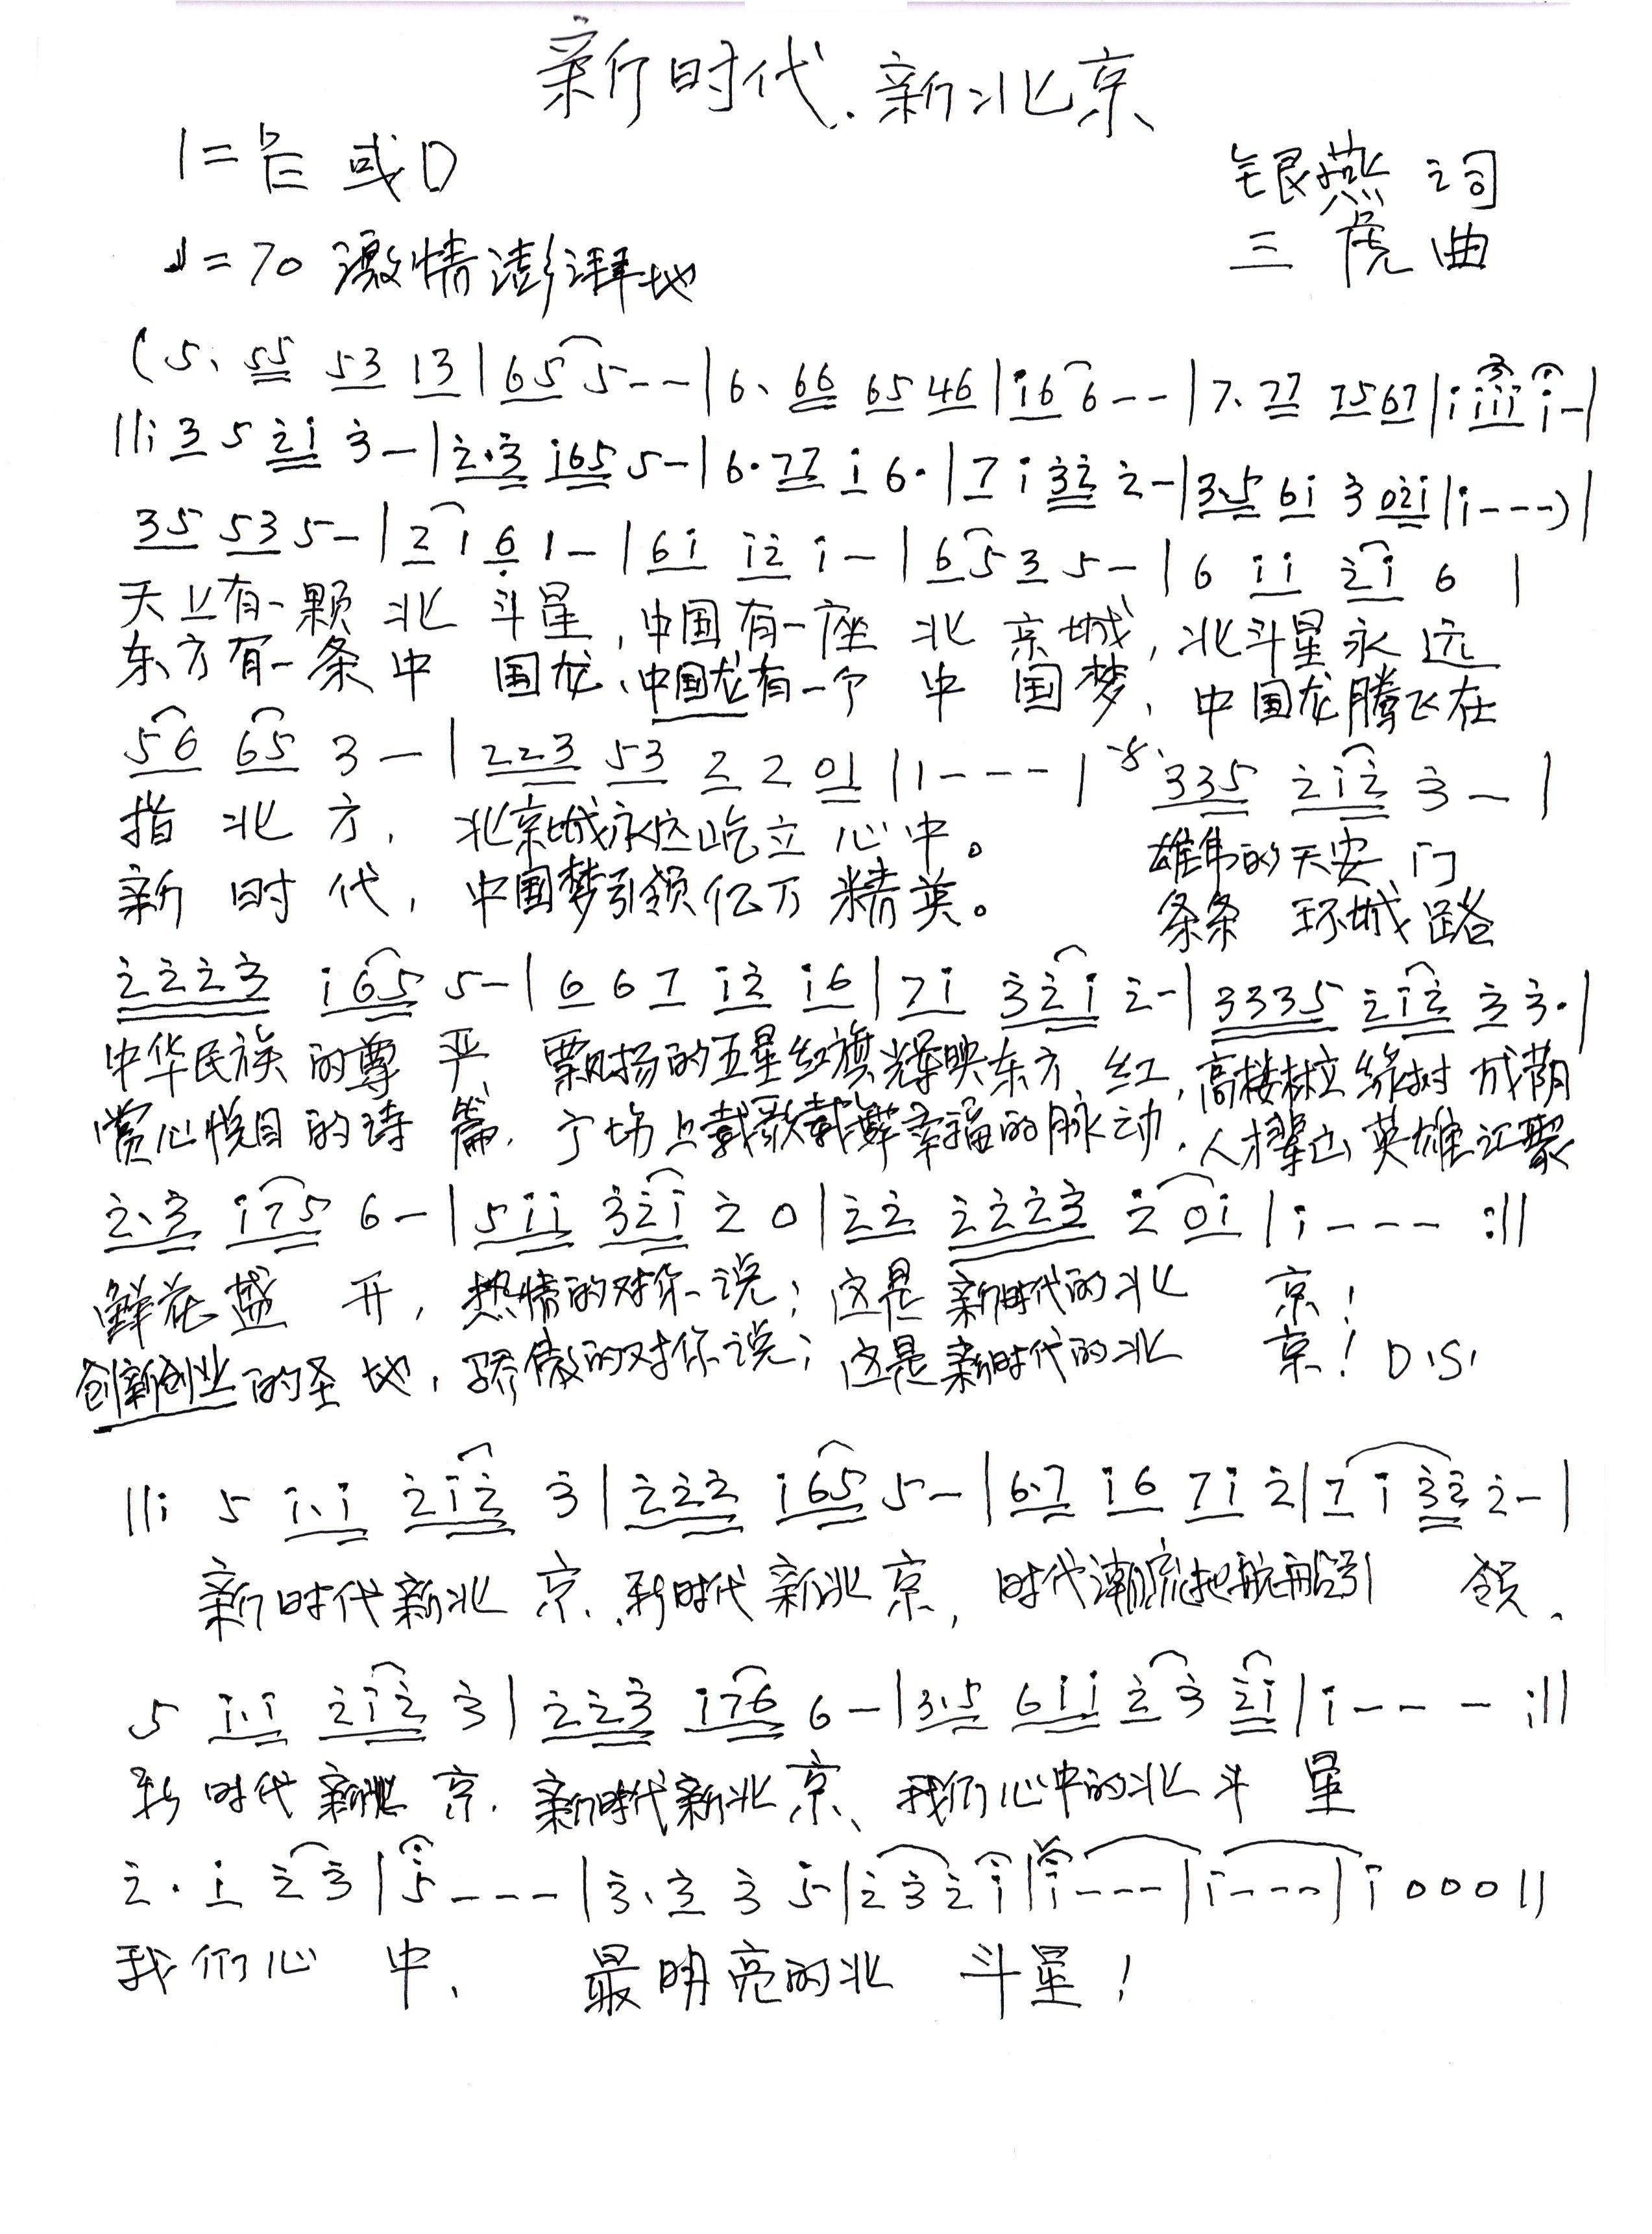 新时代.新北京
1=♭E 或D
银燕 词
♩=70 激情澎湃地
三虎 曲
(5. 55 53 13|65 5--|6. 66 65 46|i6 6--|7. 77 7567|i iii i-|
||: 3 5 2i 3-|2.3 i65 5-|6.77 i 6.|7 i 32 2-|3.5 6i 3 02i|i---)|
35 53 5-|2 1 6 1-|6i i2 i-|6 5 3 5-|6 ii 2i 6|
天上有一颗 北 斗星,中国有一座 北 京城,北斗星永远
东方有一条中 国龙、中国龙有一个 中 国梦,中国龙腾飞在
56 65 3-|223 53 2 2 01|1---| 335 2i2 3-|
指 北 方,北京城永远屹立 心中。 雄伟的天安门
新 时 代,中国梦引领亿万 精英。 条条 环城路
2223 i65 5-|6 67 i2 i6|7i 32i 2-|3335 2i2 3 3.|
中华民族 的尊 严 飘扬的五星红旗辉映东方 红,高楼林立 绿树 成荫
赏心悦目的诗 篇.广场上载歌载舞幸福的脉动.人才辈出 英雄汇聚
2.3 i75 6-|5ii 32i 2 0|22 2223 2 0i|i--- :||
鲜花盛 开,热情的对你说:这是 新时代的北 京!
创新创业的圣地,骄傲的对你说:这是新时代的北 京!D.S.
||: 5 i.i 2i2 3|222 i65 5-|6.7 i6 7i 2|7 i 32 2-|
新时代新北 京.新时代新北京,时代潮流起航船引 领.
5 i.i 2i2 3|223 i76 6-|3.5 6ii 2 3 2i|i--- :||
新时代 新北 京.新时代新北京、我们心中的北斗 星
2. i 2 3|5---|3.3 3 5|2 3 2 i|i---|i---|i 000||
我们心 中. 最明亮的北 斗星!